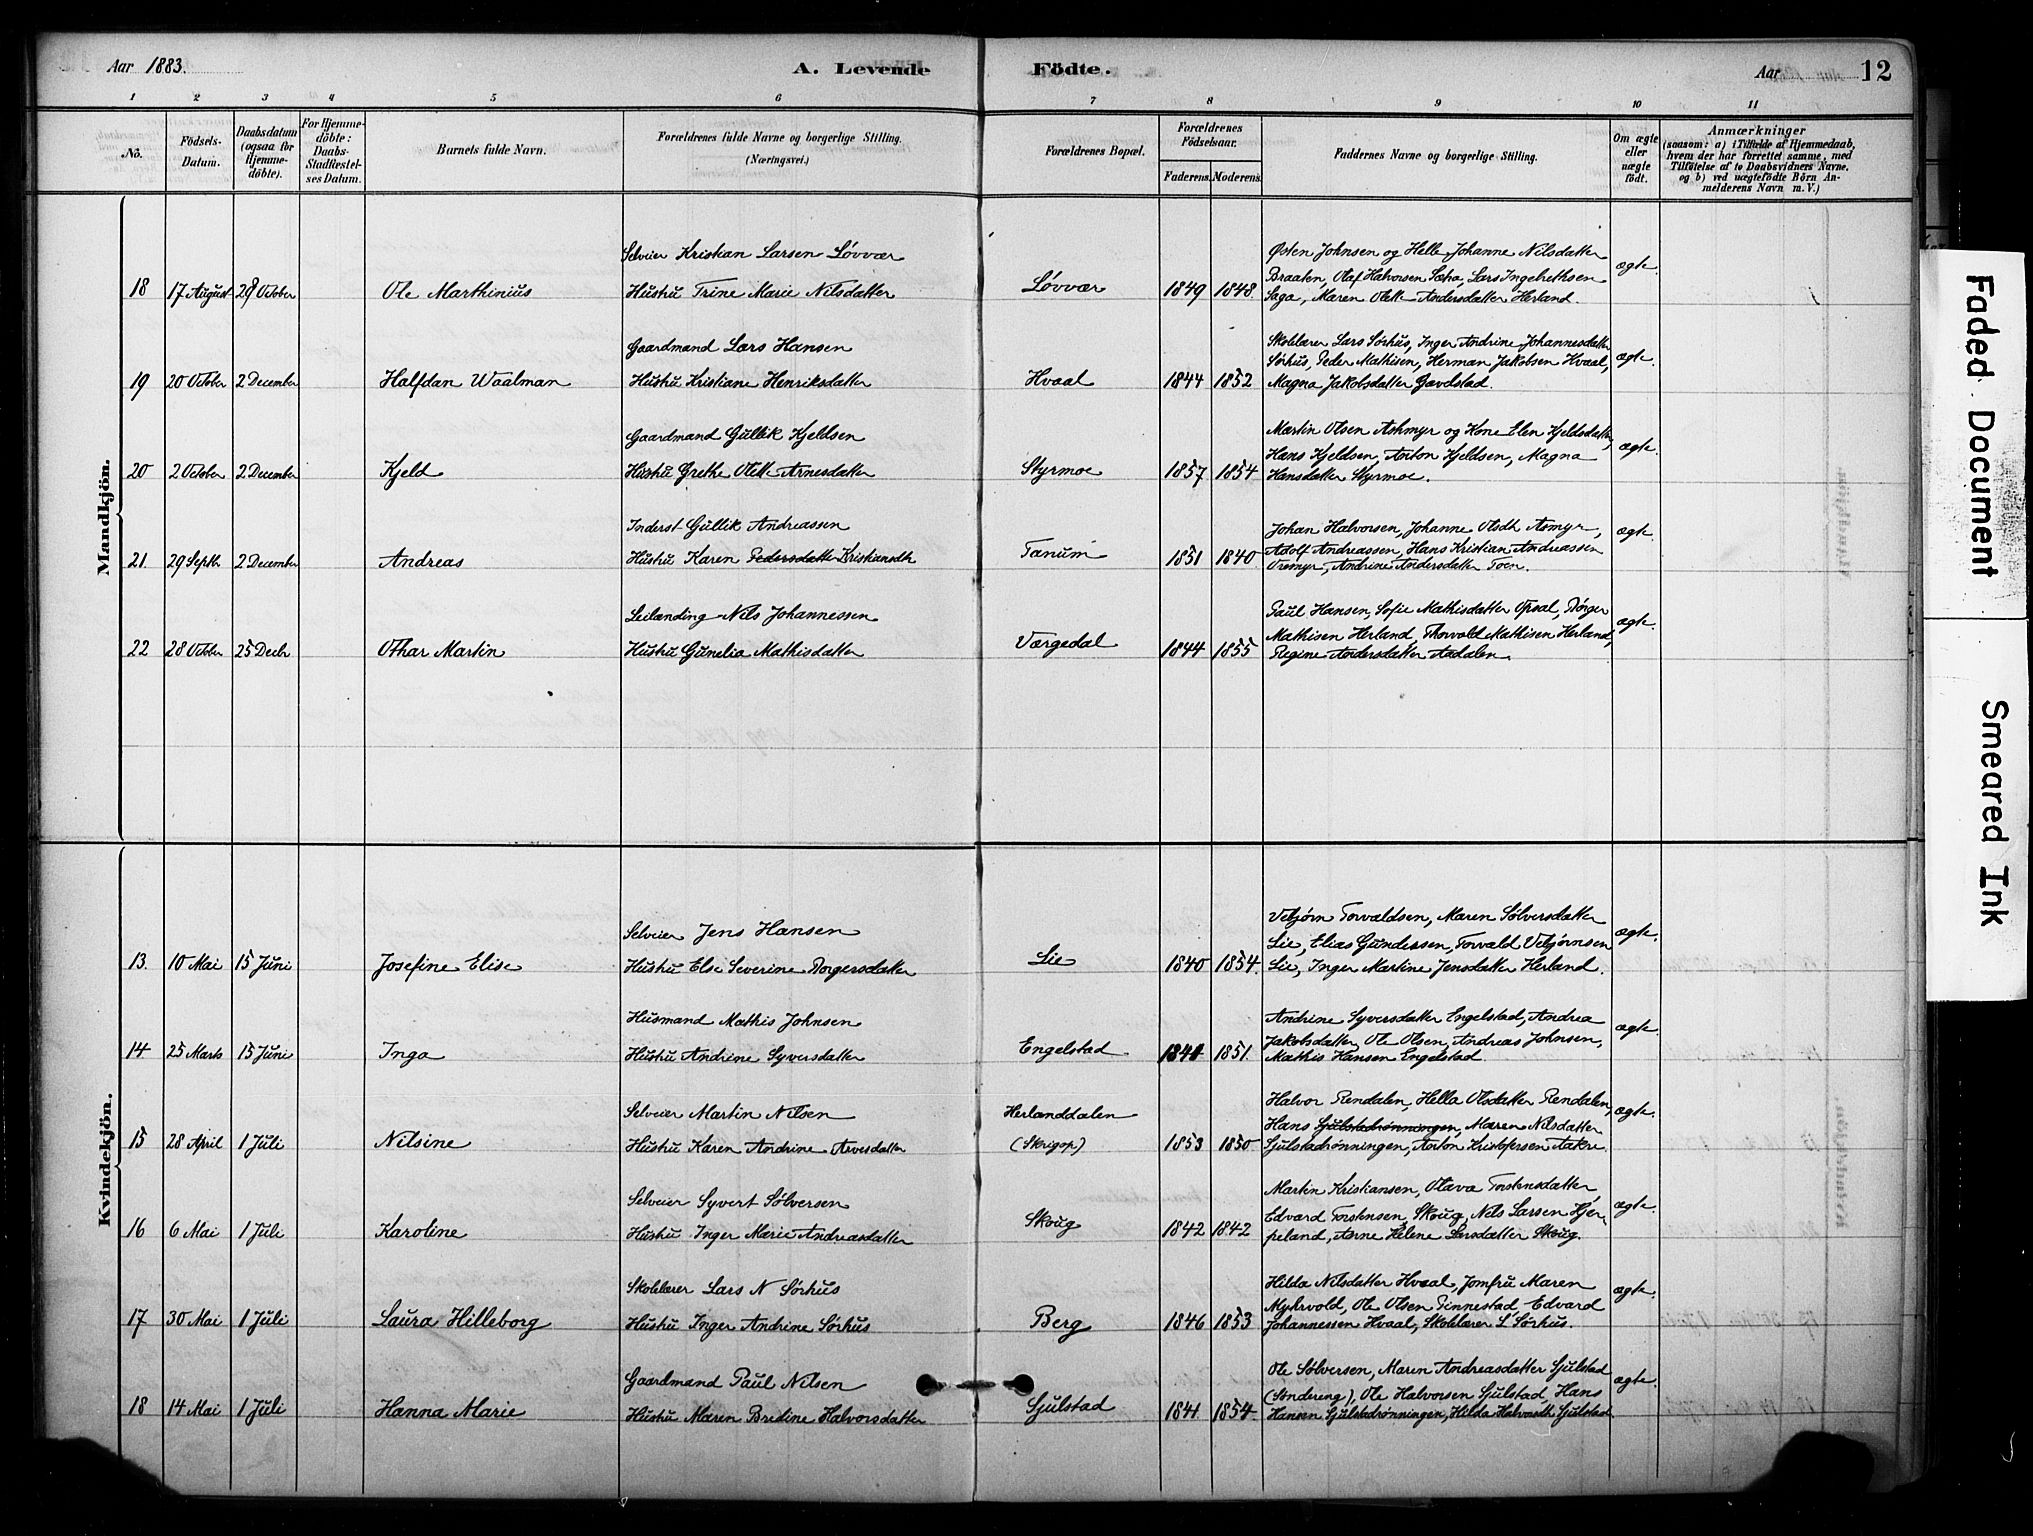 Aar 1883.
A. Levende
Födte.
Aar
12
1 2 3 4 5 6 7 8 9 10 11
No.
Födsels-
Datum.
Daabsdatum
(ogsaa for
Hjemme-
döbte).
For Hjemme-
döbte:
Daabs-
Stadfæstel-
ses Datum.
Barnets fulde Navn.
Forældrenes fulde Navne og borgerlige Stilling.
(Næringsvei.)
Forældrenes Bopæl.
Forældrenes
Födselsaar.
Faderens. Moderens.
Faddernes Navne og borgerlige Stilling.
Om ægte
eller
uægte
födt.
Anmærkninger
(saasom: a) i Tilfælde af Hjemmedaab,
hvem der har forrettet samme, med
Tilföielse af to Daabsvidners Navne.
og b) ved uægtefödte Börn An-
melderens Navn m. V.)
Mandkjön.
Selveier Kristian Larsen Løvvær
Østen Johnsen og Helle Johanne Nilsdatter
Braaten, Olaf Halvorsen Sæha, Lars Ingebrethsen
ægte.
18 17 August 29 October Ole Marthinius Hustru Trine Marie Nilsdatter Løvvær 1849 1848 Saga, Maren Olette Andersdatter Herland.
Gaardmand Lars Hansen
Skolelærer Lars Sørhus, Inger Andrine Johannesdatter
Sørhus, Peder Mathisen, Herman Jakobsen Hvaal,
ægte.
19 20 October 2 December Halfdan Waalman Hustru Kristiane Henriksdatter Hvaal 1844 1852 Magna Jakobsdatter Gavelstad.
Gaardmand Gullik Kjeldsen
Martin Olsen Askmyr og Kone Elen Kjeldsdatter,
Hans Kjeldsen, Anton Kjeldsen, Magna
ægte.
20 2 October 2 December Kjeld Hustru Grethe Olette Arnesdatter Styrmoe 1857 1854 Hansdatter Styrmoe.
Inderst Gullik Andreassen
Johan Halvorsen, Johanne Olsdtr Asmyr,
Adolf Andreassen, Hans Kristian Andreassen
ægte.
21. 29 Septbr 2 December Andreas Hustru Karen Pedersdatter Kristiansdtr Tanum 1851 1840 Vremyr, Andrine Andersdatter Toen.
Leilænding Nils Johannessen
Paul Hansen, Sofie Mathisdatter Opsal, Børger
Mathisen Herland, Thorvald Mathisen Herland,
ægte.
22 28 Octbr 25 Decbr Othar Martin Hustru Gunelia Mathisdatter Værgedal 1844 1855 Regine Andersdatter Aadalen.
Kvindekjön.
Selveier Jens Hansen
Vebjørn Torvaldsen, Maren Sølversdatter
Lie, Elias Gundersen, Torvald Vebjørnsen
ægte.
13. 10 Mai 15 Juni Josefine Elise Hustru Else Severine Borgersdatter Lie 1840 1854 Lie, Inger Martine Jensdatter Herland.
Husmand Mathis Johnsen
Andrine Syversdatter Engelstad, Andrea
Jakobsdatter, Ole Olsen, Andreas Johnsen,
ægte.
14 25 Marts 15 Juni Inga Hustru Andrine Syversdatter Engelstad 1841 1851. Mathis Hansen Engelstad.
Selveier Martin Nilsen
Herlanddalen
Halvor Rendalen, Hella Olsdatter Rendalen,
Hans Sjulstadrønningen, Maren Nilsdatter
ægte.
15 28 April 1 Juli Nilsine Hustru Karen Andrine Arvesdatter (Skrigop) 1853 1850 Sjulstadrønningen, Anton Kristofersen Aakre.
Selveier Syvert Sølversen
Martin Kristiansen, Olava Torstensdatter,
Edvard Torstensen, Skoug, Nils Larsen Hjer-
ægte.
16 6 Mai 1 Juli Karoline Hustru Inger Marie Andreasdatter Skoug 1842 1842 peland, Anne Helene Larsdatter Skoug.
Skolelærer Lars N Sørhus
Hilda Nilsdatter Hvaal, Jomfru Maren
Myhrvold, Ole Olsen Tinnestad, Edvard
ægte.
17 30 Mai 1 Juli Laura Hilleborg Hustru Inger Andrine Sørhus Berg 1846 1853 Johannessen Hvaal, Skolelærer L Sørhus.
Gaardmand Paul Nilsen
Ole Sølversen, Maren Andreasdatter Sjulstad
(Søndereng), Ole Halvorsen Sjulstad, Hans
ægte.
18 14 Mai 1 Juli Hanna Marie Hustru Maren Bredine Halvorsdatter Sjulstad 1841 1854 Hansen Sjulstadrønningen, Hilda Halvorsdtr Sjulstad.
Faded Document
Smeared Ink